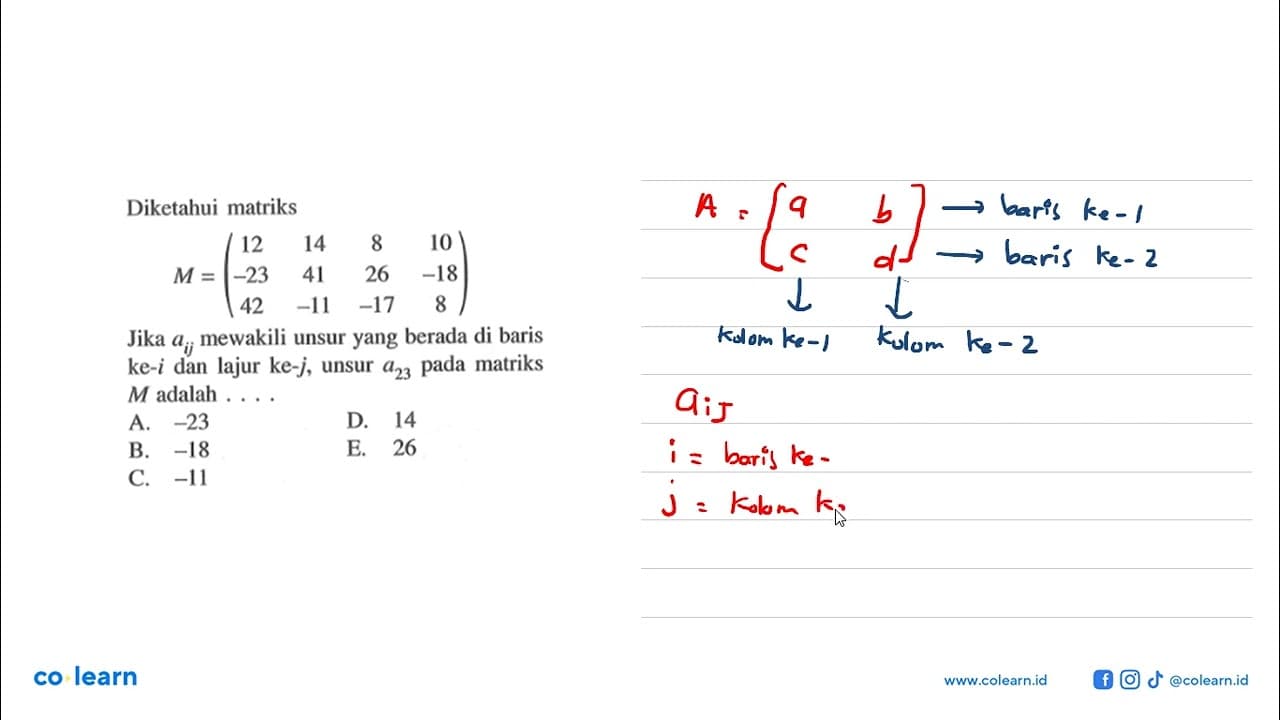 Diketahui matriks
M = ( 12 14 8 10
-23 41 26 -18
42 -11 -17 8 )
Jika a_ij mewakili unsur yang berada di baris
ke-i dan lajur ke-j, unsur a_23 pada matriks
M adalah . . . .
A. -23
B. -18
C. -11
D. 14
E. 26
A = [ a b ] → baris ke-1
[ c d ] → baris ke-2
↓ ↓
kolom ke-1 kolom ke-2
a_ij
i = baris ke-
j = kolom ke
co learn
www.colearn.id
@colearn.id